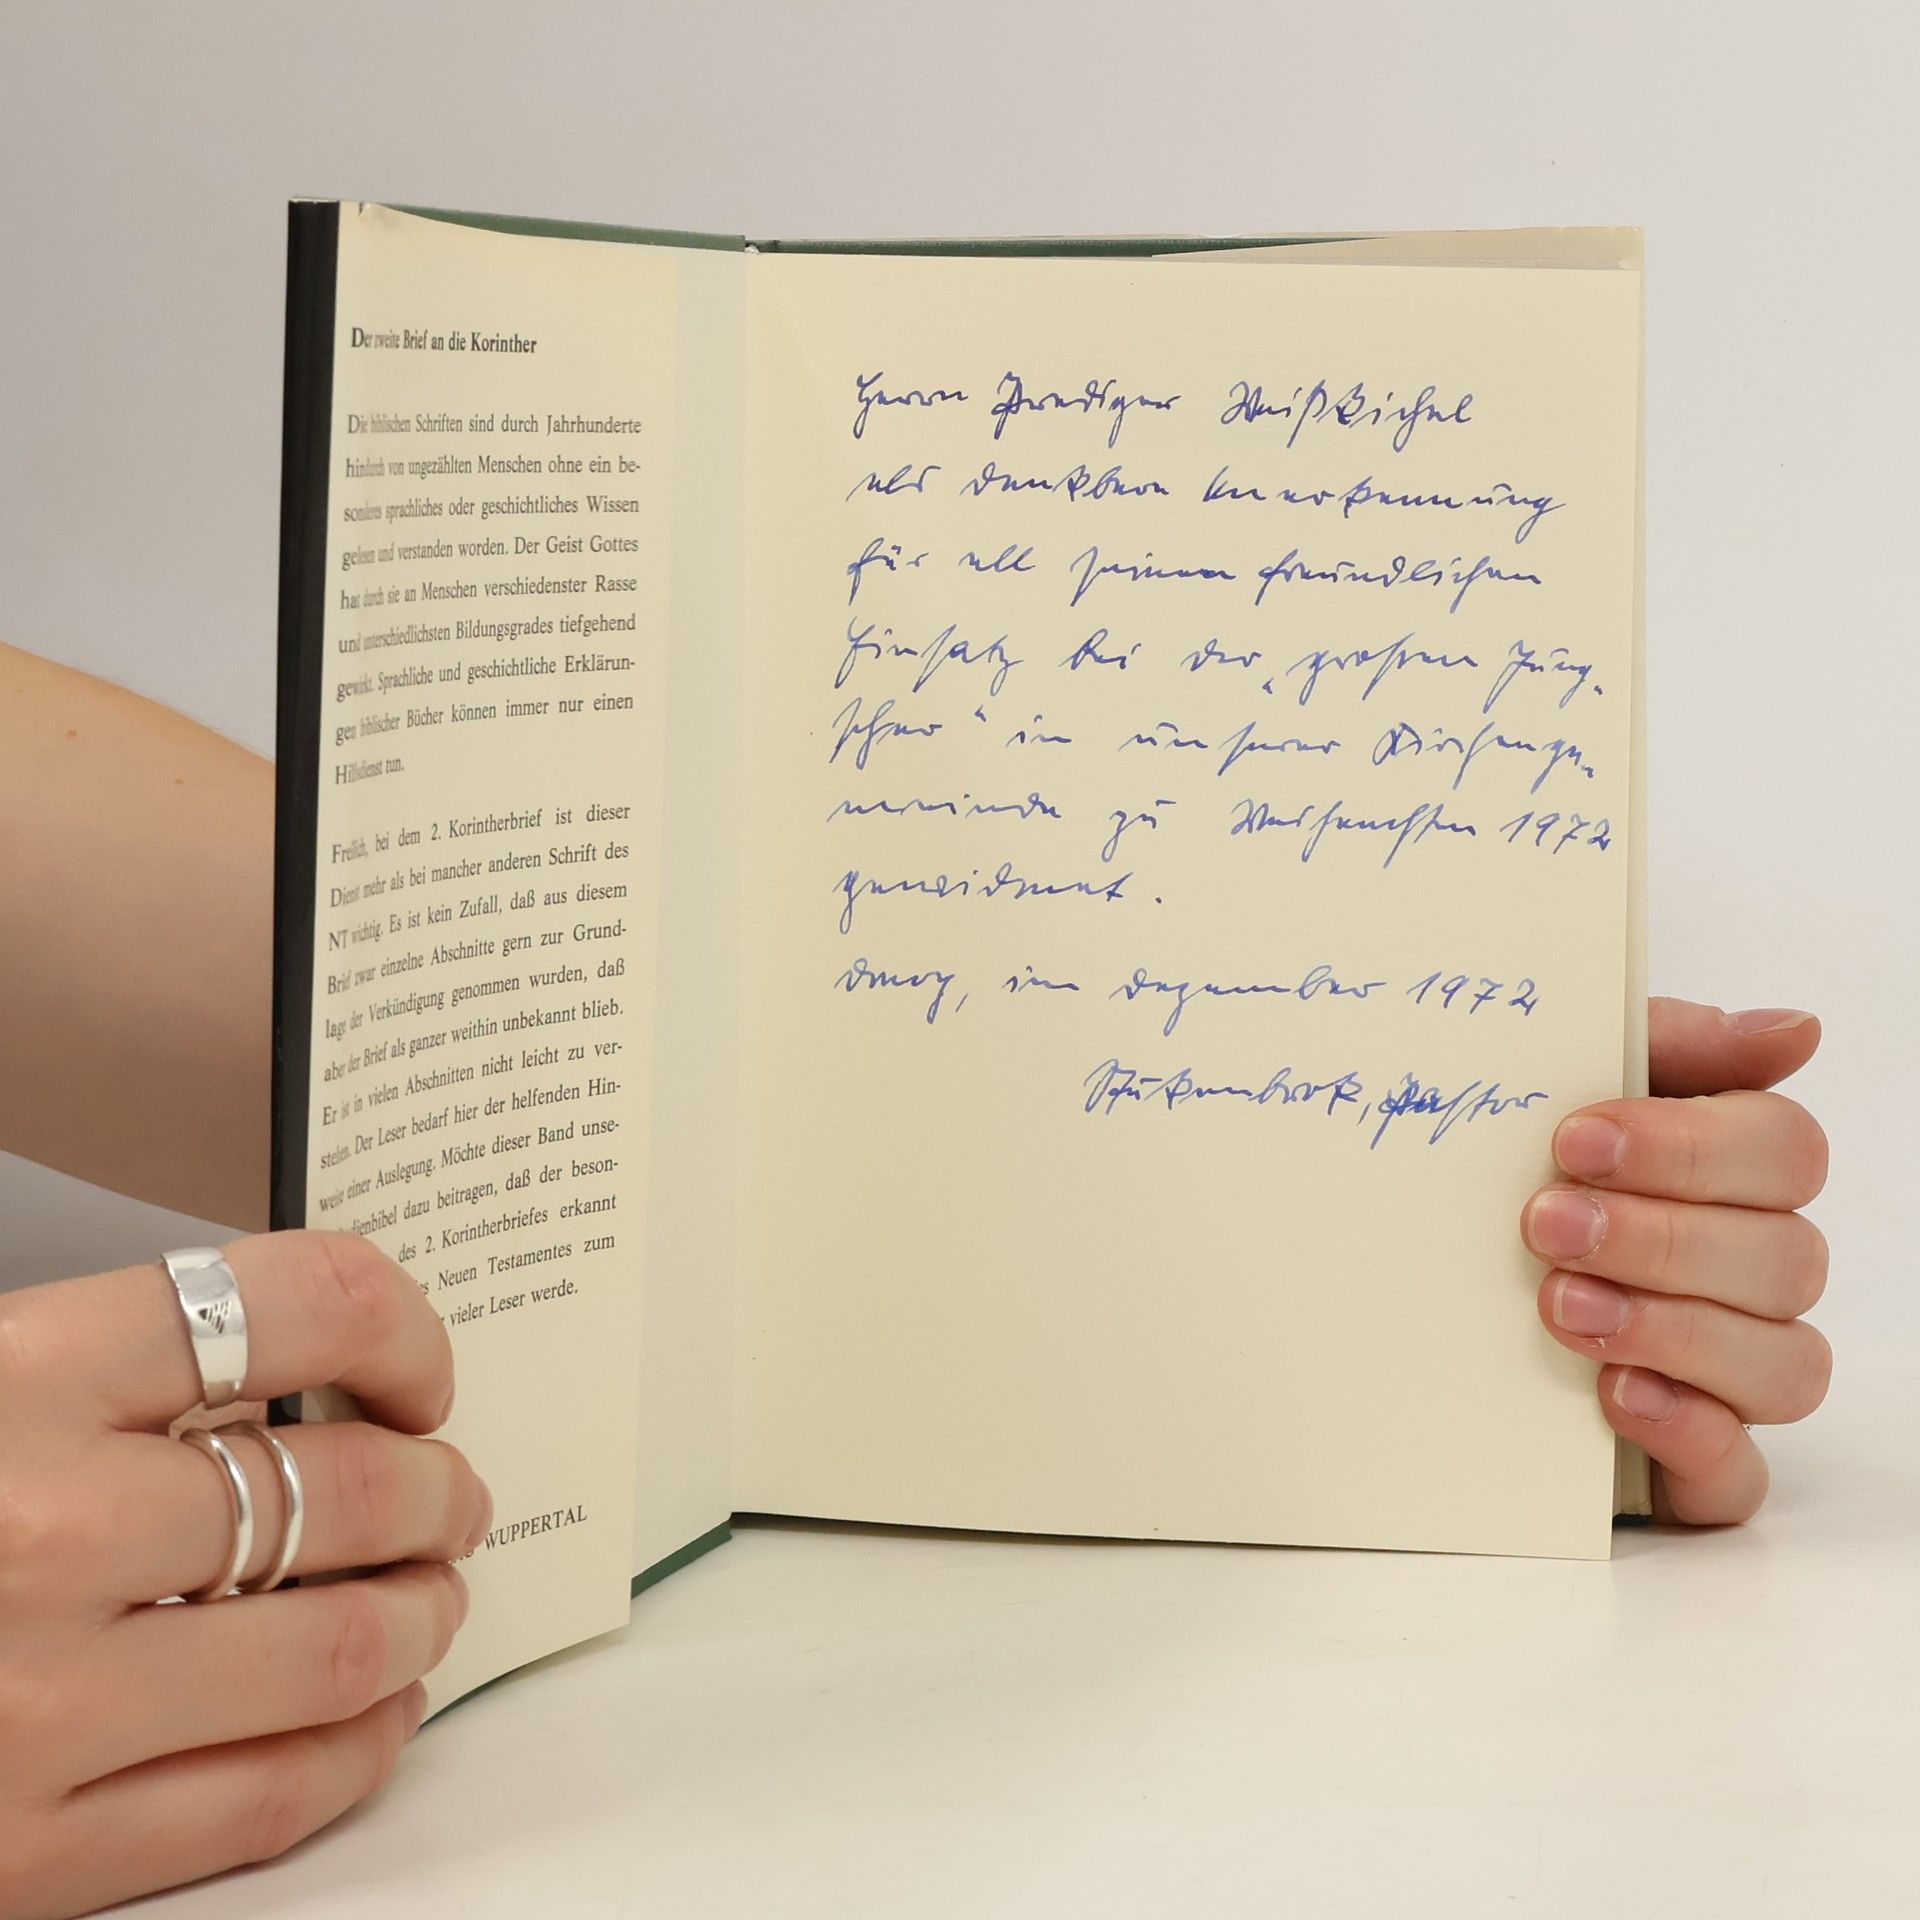 Der zweite Brief an die Korinther
Die biblischen Schriften sind durch Jahrhunderte
hindurch von ungezählten Menschen ohne ein be-
sonderes sprachliches oder geschichtliches Wissen
gelesen und verstanden worden. Der Geist Gottes
hat durch sie an Menschen verschiedenster Rasse
und unterschiedlichsten Bildungsgrades tiefgehend
gewirkt. Sprachliche und geschichtliche Erklärun-
gen biblischer Bücher können immer nur einen
Hilfsdienst tun.
Freilich, bei dem 2. Korintherbrief ist dieser
Dienst mehr als bei mancher anderen Schrift des
NT wichtig. Es ist kein Zufall, daß aus diesem
Brief zwar einzelne Abschnitte gern zur Grund-
lage der Verkündigung genommen wurden, daß
aber der Brief als ganzer weithin unbekannt blieb.
Er ist in vielen Abschnitten nicht leicht zu ver-
stehen. Der Leser bedarf hier der helfenden Hin-
weise einer Auslegung. Möchte dieser Band unse-
dienbibel dazu beitragen, daß der beson-
des 2. Korintherbriefes erkannt
es Neuen Testamentes zum
vieler Leser werde.
WUPPERTAL
Herrn Prediger Weißkichel
als dankbare Anerkennung
für all seinen freundlichen
Einsatz bei der „großen Jung-
schar“ in unserer Kirchenge-
meinde zu Weihnachten 1972
gewidmet.
im Dezember 1972
Stukenbrok, Pastor